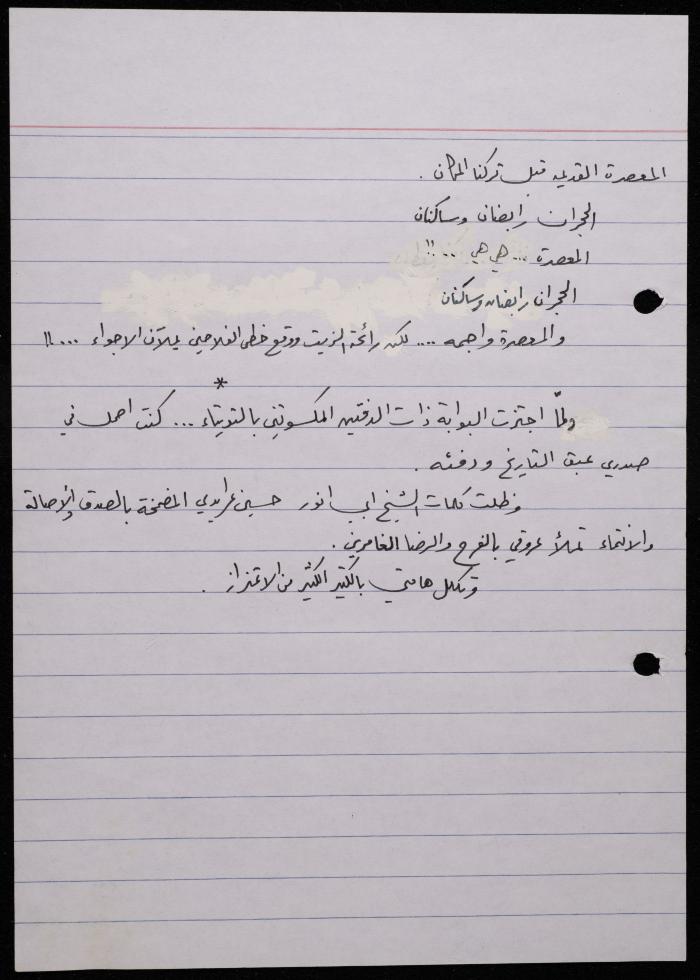 المعصرة القديمه قبل تركنا المكان .
الحجران رابضان وساكنان
المعصرة ... هي هي ... !!
الحجران رابضان وساكنان
والمعصرة واجمه .... لكن رائحة الزيت ووقع خطى الفلاحين يملآن الاجواء .... !!
*
ولمّا اجتزت البوابة ذات الدفتين المكسوتين بالتوتياء ... كنت احمل في
صدري عبق التاريخ ودفئه .
وظلت كلمات الشيخ ابي انور حسين عرايدي المضمخة بالصدق والإصالة
والانتماء تملأ عروقي بالفرح والرضا الغامرين .
وتكلل هامتي بالكثير الكثير من الاعتزاز .